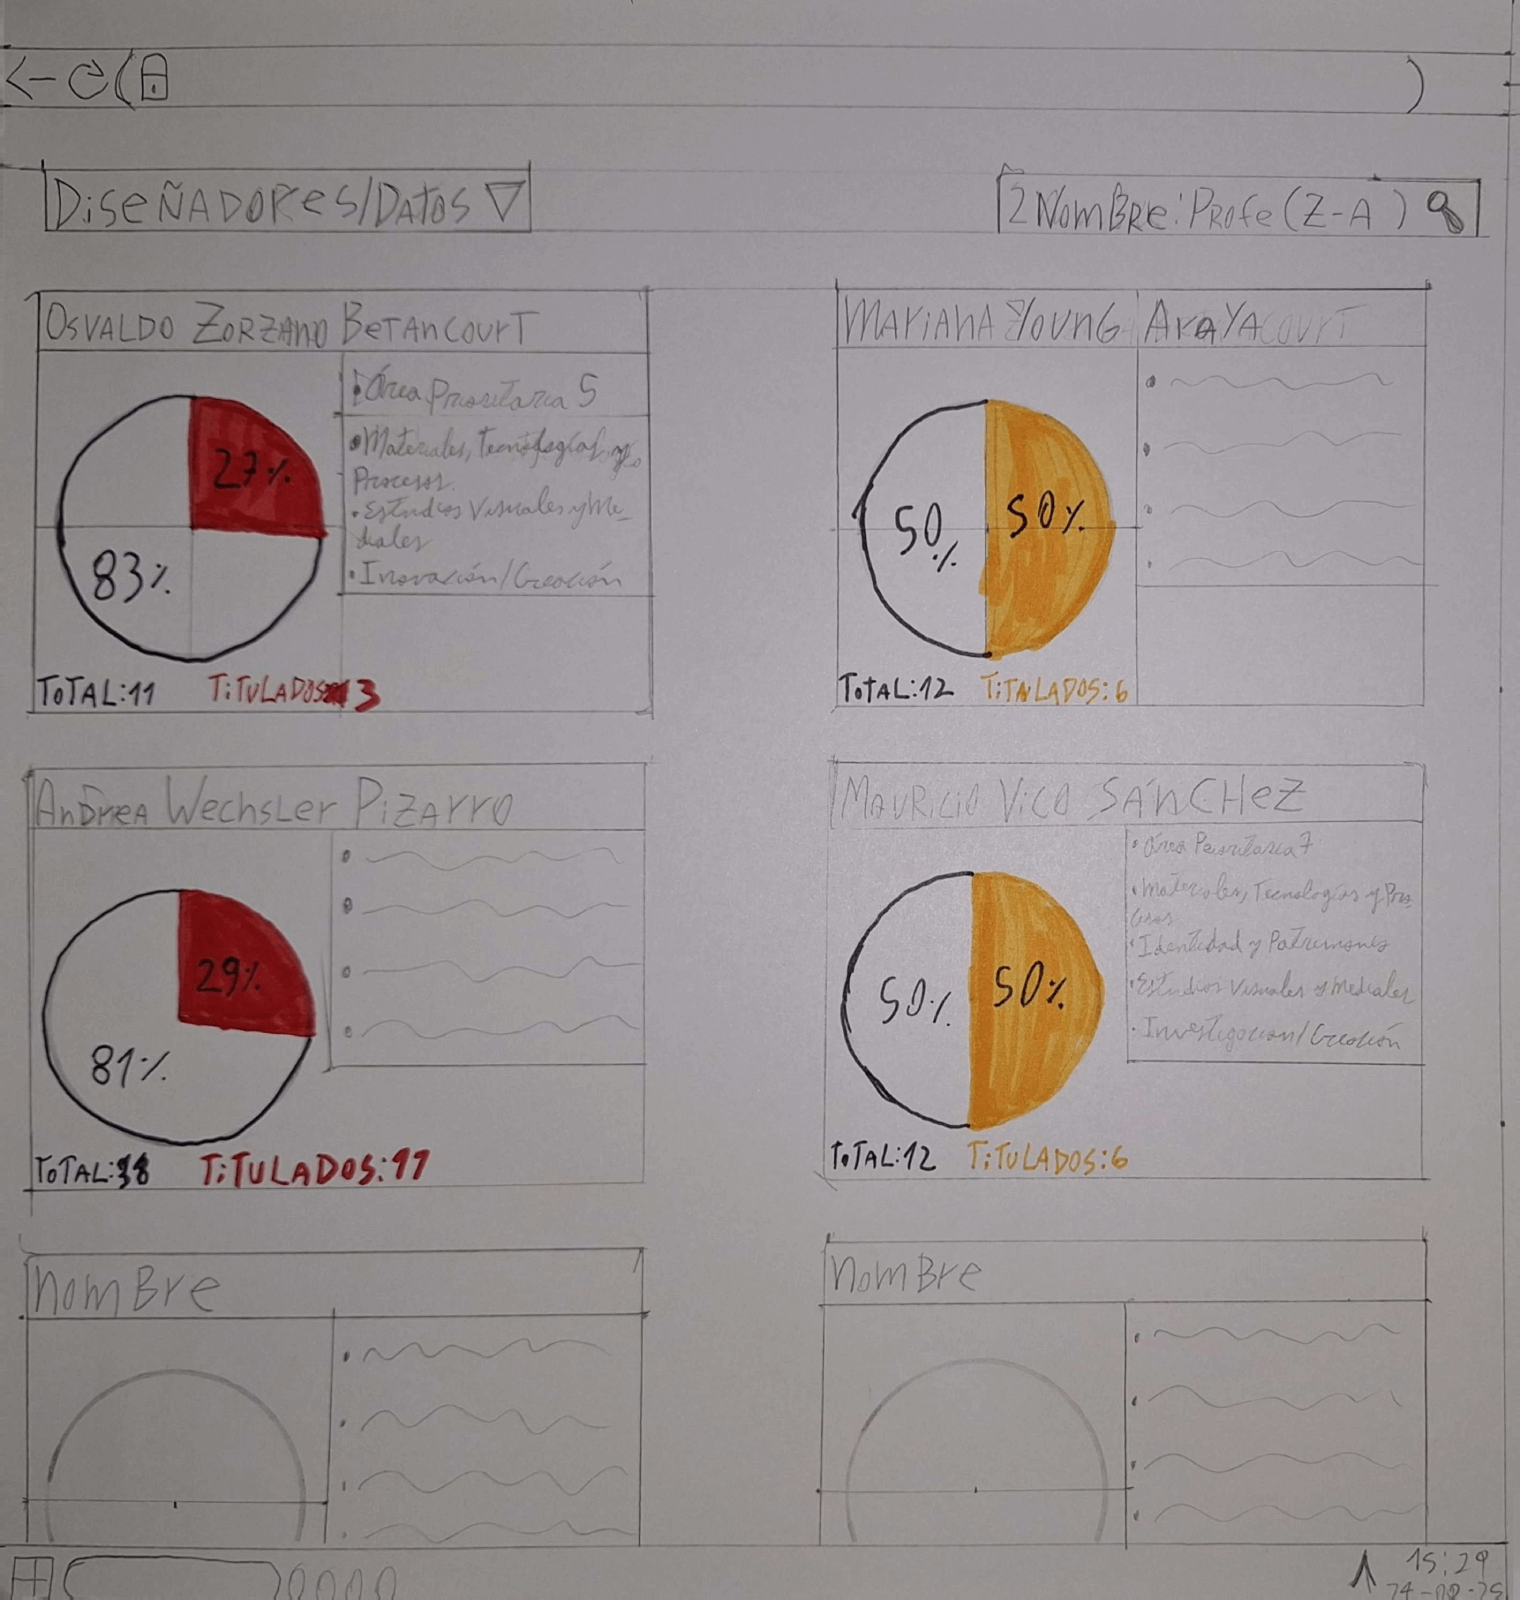 DiseÑADORes/DATos
2 NomBre: PROfe (Z-A)
OsVALDO ZORZANO BeTAncourT
27%
83%
• Área Prioritaria 5
• Materiales, Tecnologías y
Procesos.
• Estudios Visuales y Me-
diales
• Inovación/Creación
ToTAL:11 TiTULADOS 3
MAriAnA YounG ArAYA
50% 50%
ToTAL:12 TiTALADOS:6
AnDreA WechsLer PizArro
29%
81%
ToTAL:38 TiTULADOS:11
MAuRicio Vico SÁnCHeZ
50% 50%
• Área Prioritaria 7
• Materiales, Tecnologías y Pro-
cesos
• Identidad y Patrimonio
• Estudios Visuales y Mediales
• Investigación/Creación
ToTAL:12 TiTULADOS:6
nomBre
nomBre
15:29